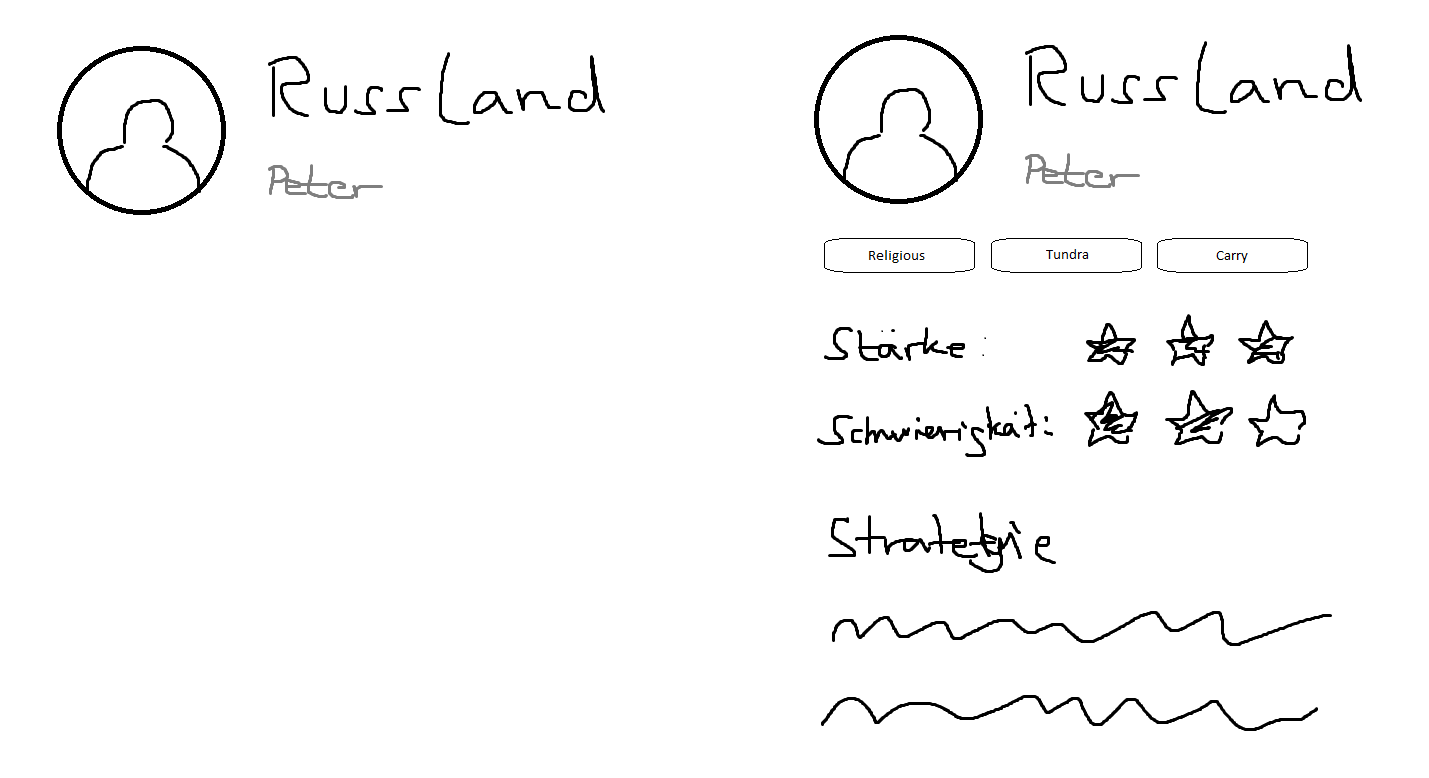 Russland
Peter
Russland
Peter
Religious Tundra Carry
Stärke:
Schwierigkät:
Strategie